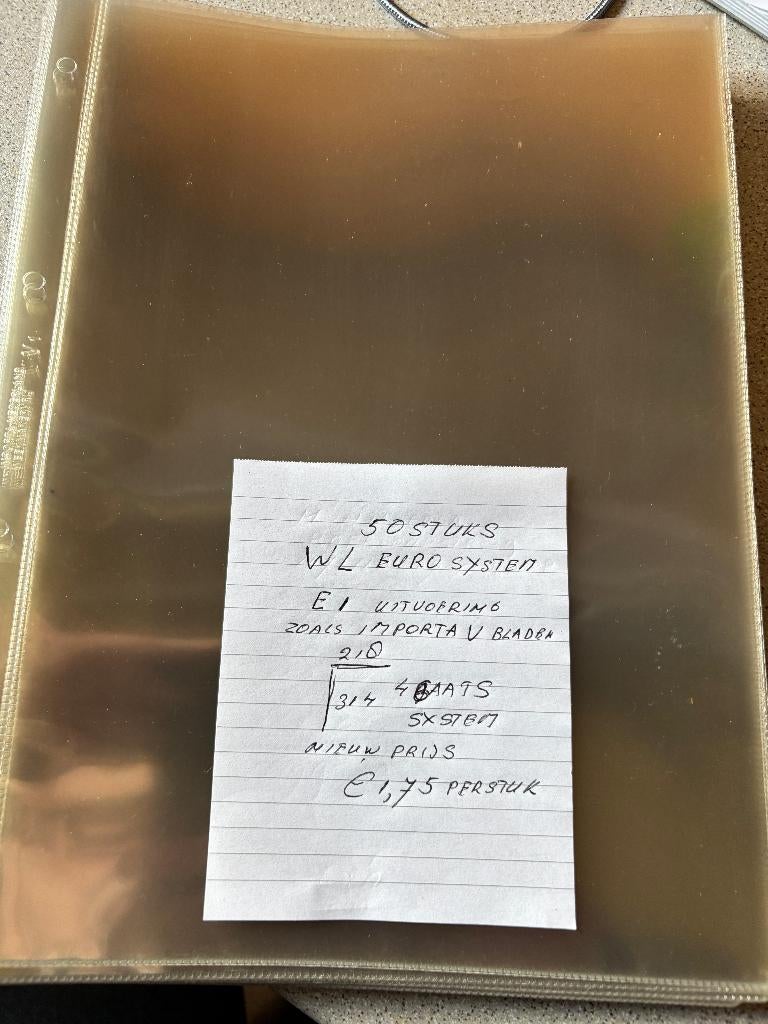 50 STUKS
WL EURO SYSTEM
E1 UITVOERING
ZOALS IMPORTA V BLADEN
218
314 4 GAATS
SYSTEM
NIEUW PRIJS
€1,75 PER STUK